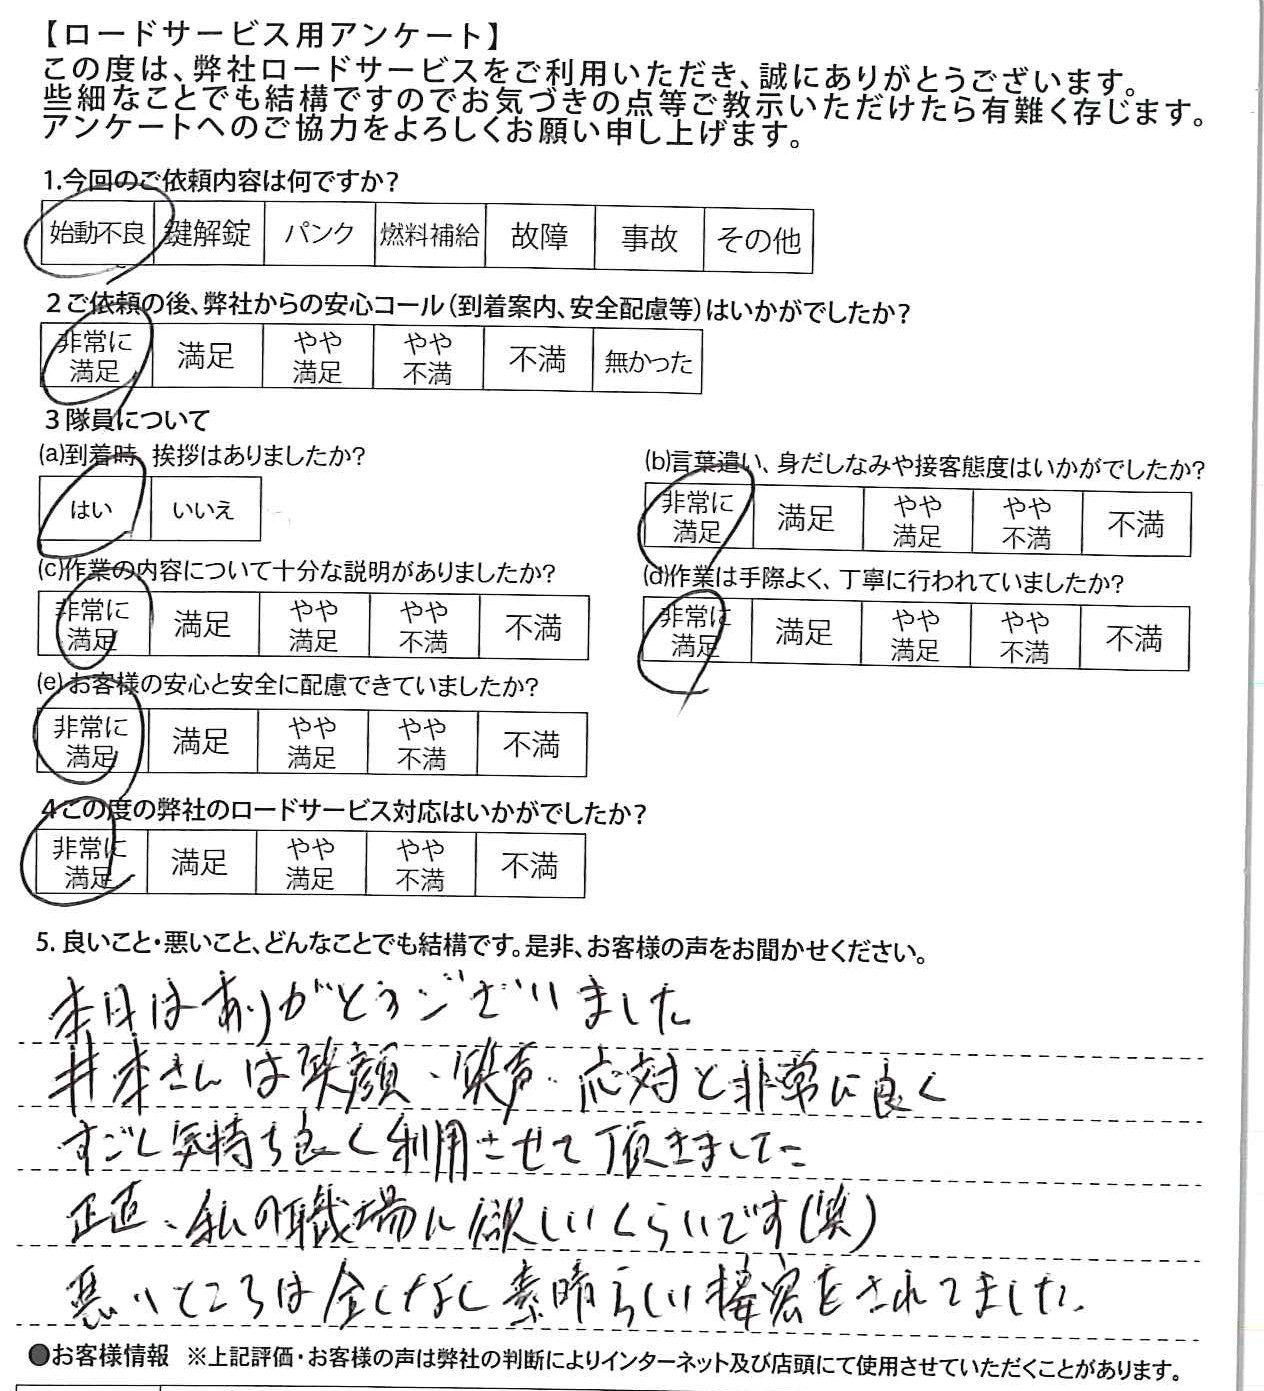 【ロードサービス用アンケート】
この度は、弊社ロードサービスをご利用いただき、誠にありがとうございます。
些細なことでも結構ですのでお気づきの点等ご教示いただけたら有難く存じます。
アンケートへのご協力をよろしくお願い申し上げます。
1.今回のご依頼内容は何ですか?
始動不良 鍵解錠 パンク 燃料補給 故障 事故 その他
2ご依頼の後、弊社からの安心コール(到着案内、安全配慮等)はいかがでしたか?
非常に満足 満足 やや満足 やや不満 不満 無かった
3隊員について
(a)到着時、挨拶はありましたか?
はい いいえ
(b)言葉遣い、身だしなみや接客態度はいかがでしたか?
非常に満足 満足 やや満足 やや不満 不満
(c)作業の内容について十分な説明がありましたか?
非常に満足 満足 やや満足 やや不満 不満
(d)作業は手際よく、丁寧に行われていましたか?
非常に満足 満足 やや満足 やや不満 不満
(e)お客様の安心と安全に配慮できていましたか?
非常に満足 満足 やや満足 やや不満 不満
4この度の弊社のロードサービス対応はいかがでしたか?
非常に満足 満足 やや満足 やや不満 不満
5. 良いこと・悪いこと、どんなことでも結構です。是非、お客様の声をお聞かせください。
本日はありがとうございました
井本さんは笑顔、笑声、応対と非常に良く
すごく気持ち良く利用させて頂きました
正直、私の職場に欲しいくらいです(笑)
悪いところは全くなし素晴らしい接客をされてました。
●お客様情報 ※上記評価・お客様の声は弊社の判断によりインターネット及び店頭にて使用させていただくことがあります。